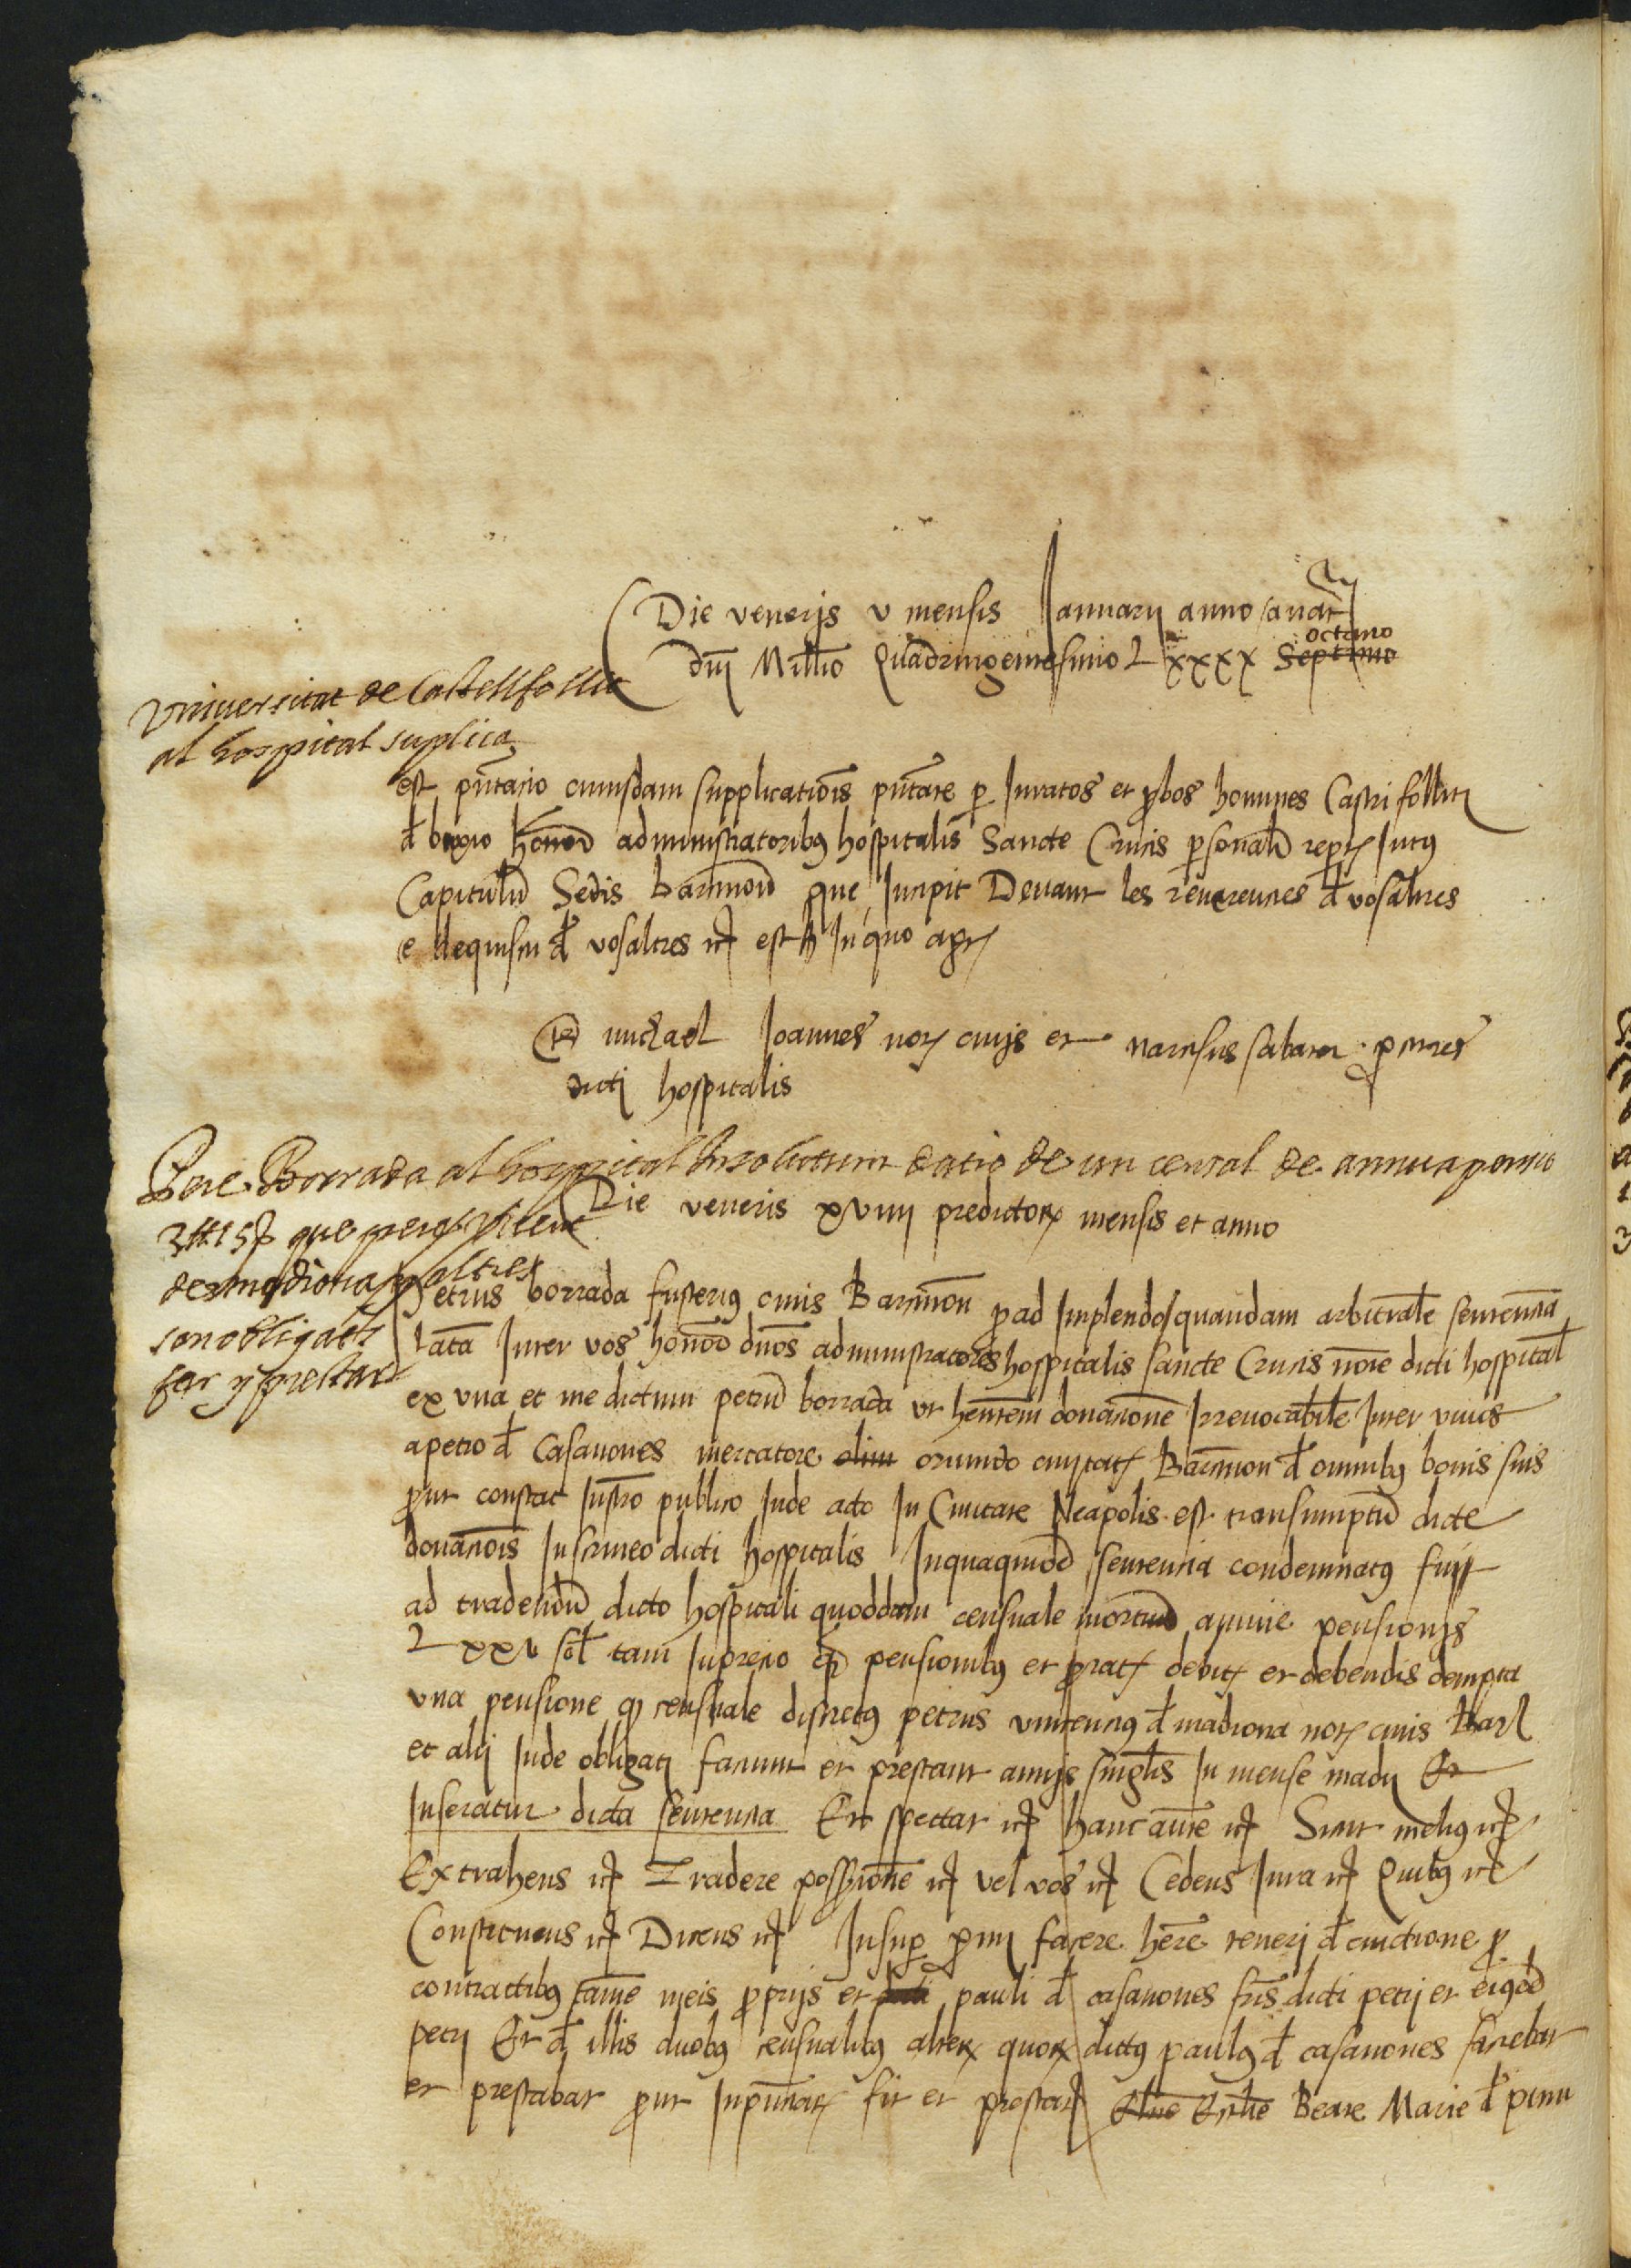 Die venerįs v mensis Januarii anno a nat
dnj Millo Quadringentesimo Lxxxx Septimo octavo
Universitat de Castellfollit
al hospital suplica
est pñtacio cuiusdam supplicatiois pñtate p Juratos et pbos homines Castri folliti
d boxio honor administratoribus hospitalis Sancte Crucis psonalr reptis Intus
Capitulũ Sedis barchnon que Incipit Devant les reverencies d vosaltres
e dequiscu d vosaltres etc est In quo aptis
Ts michael Joannes not civis et narcisus sabater pntes
dicti hospitalis
Pere Borrada al hospital Insolutum datio de un censal de annua pensio
3 ₶ 15 ß que pere Vicent
de madiona y altres
son obligats
fer y prestar
Die veneris xviiij predictorum mensis et anno
Petrus borrada fusterius civis Barchnon p ad Implendo quandam arbitrale sentencia
lata Inter vos honor dnos administratores hospitalis sancte Crucis noie dicti hospital
ex una et me dictum petrũ borrada ut hentem donacione Irrevocabile Inter vivos
a petro d Casanoves mercatore olim oriundo civitatis Barchnon d omnibus bonis suis
put constat Instro publico Inde acto In Civitate Neapolis est transumptũ dicte
donacois In scrineo dicti hospitalis In qua quid sentencia condemnatus fui
ad tradendũ dicto hospitali quoddam censuale mortuũ annue pensionis
Lxxv sol tam In precio q pensionibus et prat debitis et debendis dempta
una pensione q censuale discretus petrus vincencius d madiona not civis bar
et alij Inde obligati faciunt et prestant annis singlis In mense madij Et
Inseratur dicta sentencia Et spectat etc hanc aute etc Sicut melius etc
Extrahens etc Tradere possessione etc vel vos etc Cedens Jura etc Quibus etc
Constituens etc Dicens etc Insup pmi facere here teneri d evictione p
contractibus tame meis proprijs et dicti pauli d casanoves fris dicti petri et eiusd
petri Et d illis duobus censualibus alterum quorum dictus paulus d casanoves faciebat
et prestabat put In pñtiar fit et prestat Eccle Beate Marie d pinu